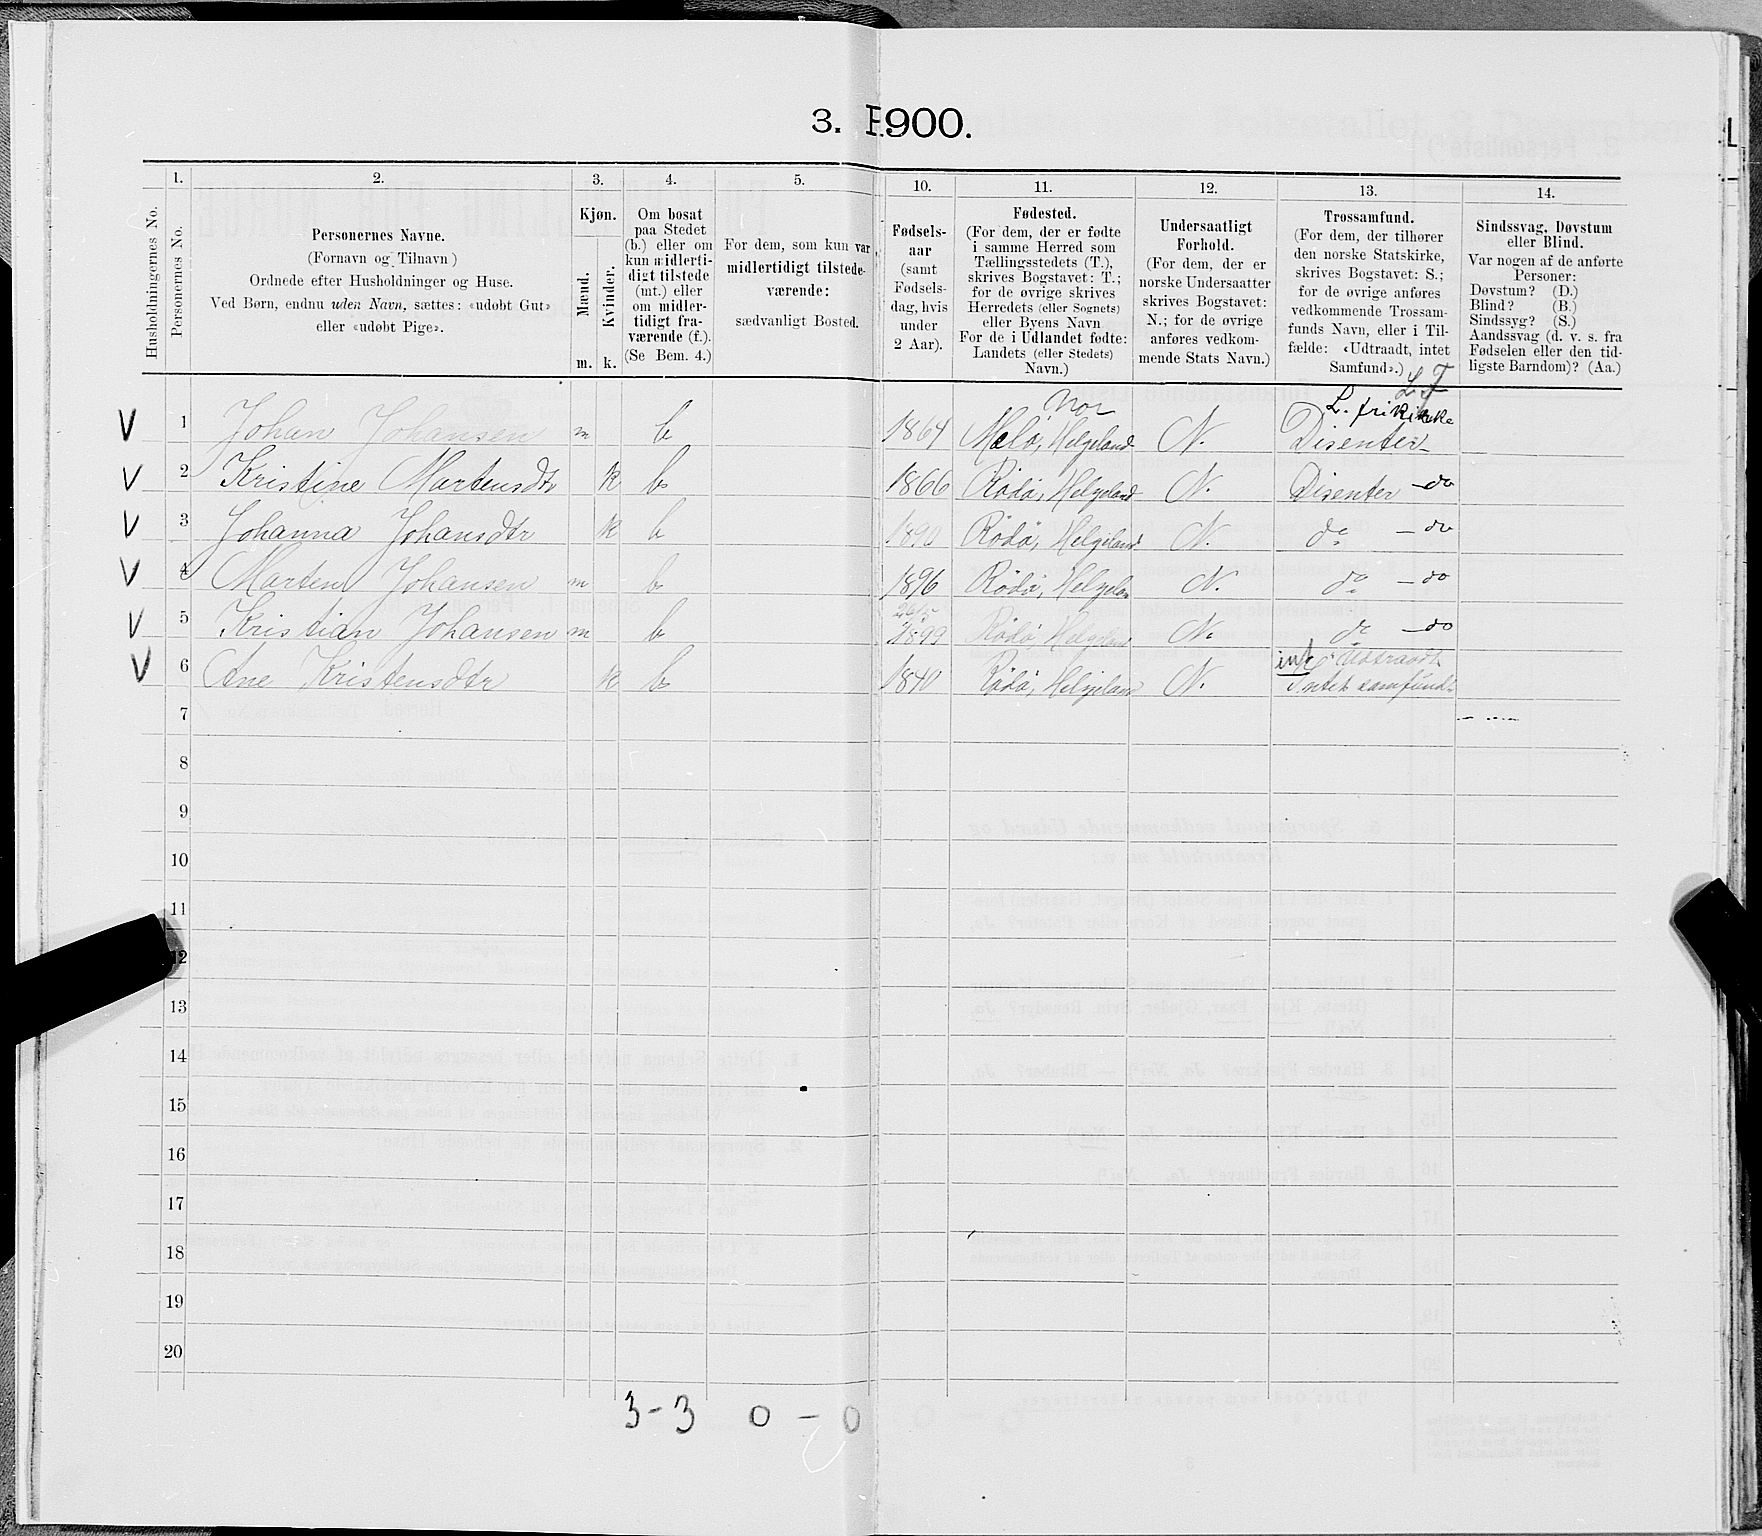 3. P 900.
1. 2. 3. 4. 5. 10. 11. 12. 13. 14.
Husholdningernes No.
Personernes No.
Personernes Navne.
(Fornavn og Tilnavn)
Ordnede efter Husholdninger og Huse.
Ved Børn, endnu uden Navn, sættes: «udøbt Gut»
eller «udøbt Pige».
Kjøn.
Mænd.
Kvinder.
m. k.
Om bosat
paa Stedet
(b.) eller om
kun midlerti-
digt tilstede
(mt.) eller
om midler-
tidigt fra-
værende (f.).
(Se Bem. 4.)
For dem, som kun var
midlertidigt tilstede-
værende:
sædvanligt Bosted.
Fødsels-
aar
(samt
Fødsels-
dag, hvis
under
2 Aar).
Fødested.
(For dem, der er fødte
i samme Herred som
Tællingsstedets (T.),
skrives Bogstavet: T.;
for de øvrige skrives
Herredets (eller Sognets)
eller Byens Navn
For de i Udlandet fødte:
Landets (eller Stedets)
Navn.)
Undersaatligt
Forhold.
(For dem, der er
norske Undersaatter
skrives Bogstavet:
N.; for de øvrige
anføres vedkom-
mende Stats Navn.)
Trossamfund.
(For dem, der tilhører
den norske Statskirke,
skrives Bogstavet: S.;
for de øvrige anføres
vedkommende Trossam-
funds Navn, eller i Til-
fælde: «Udtraadt, intet
Samfund».)
Sindssvag, Døvstum
eller Blind.
Var nogen af de anførte
Personer:
Døvstum? (D.)
Blind? (B.)
Sindssyg? (S.)
Aandssvag (d. v. s. fra
Fødselen eller den tid-
ligste Barndom)? (Aa.)
Nor L. frikirke
V 1 Johan Johansen m b 1864 Melø, Helgeland N. Disenter
V 2 Kristine Martensdtr k b 1866 Rödö, Helgeland N. Disenter - do
V 3 Johanna Johansdtr k b 1890 Rödö, Helgeland N. do - do
V 4 Marten Johansen m b 1896 Rödö, Helgelan N. do - do
V 5 Kristian Johansen m b 1899 Rödö, Helgeland N. do - do
int Udtraadt
V 6 Ane Kristensdtr k b 1840 Rödö, Helgeland N. Intet samfund
7
8
9
10
11
12
13
14
15
16
17
18
19
20
3-3 0-0